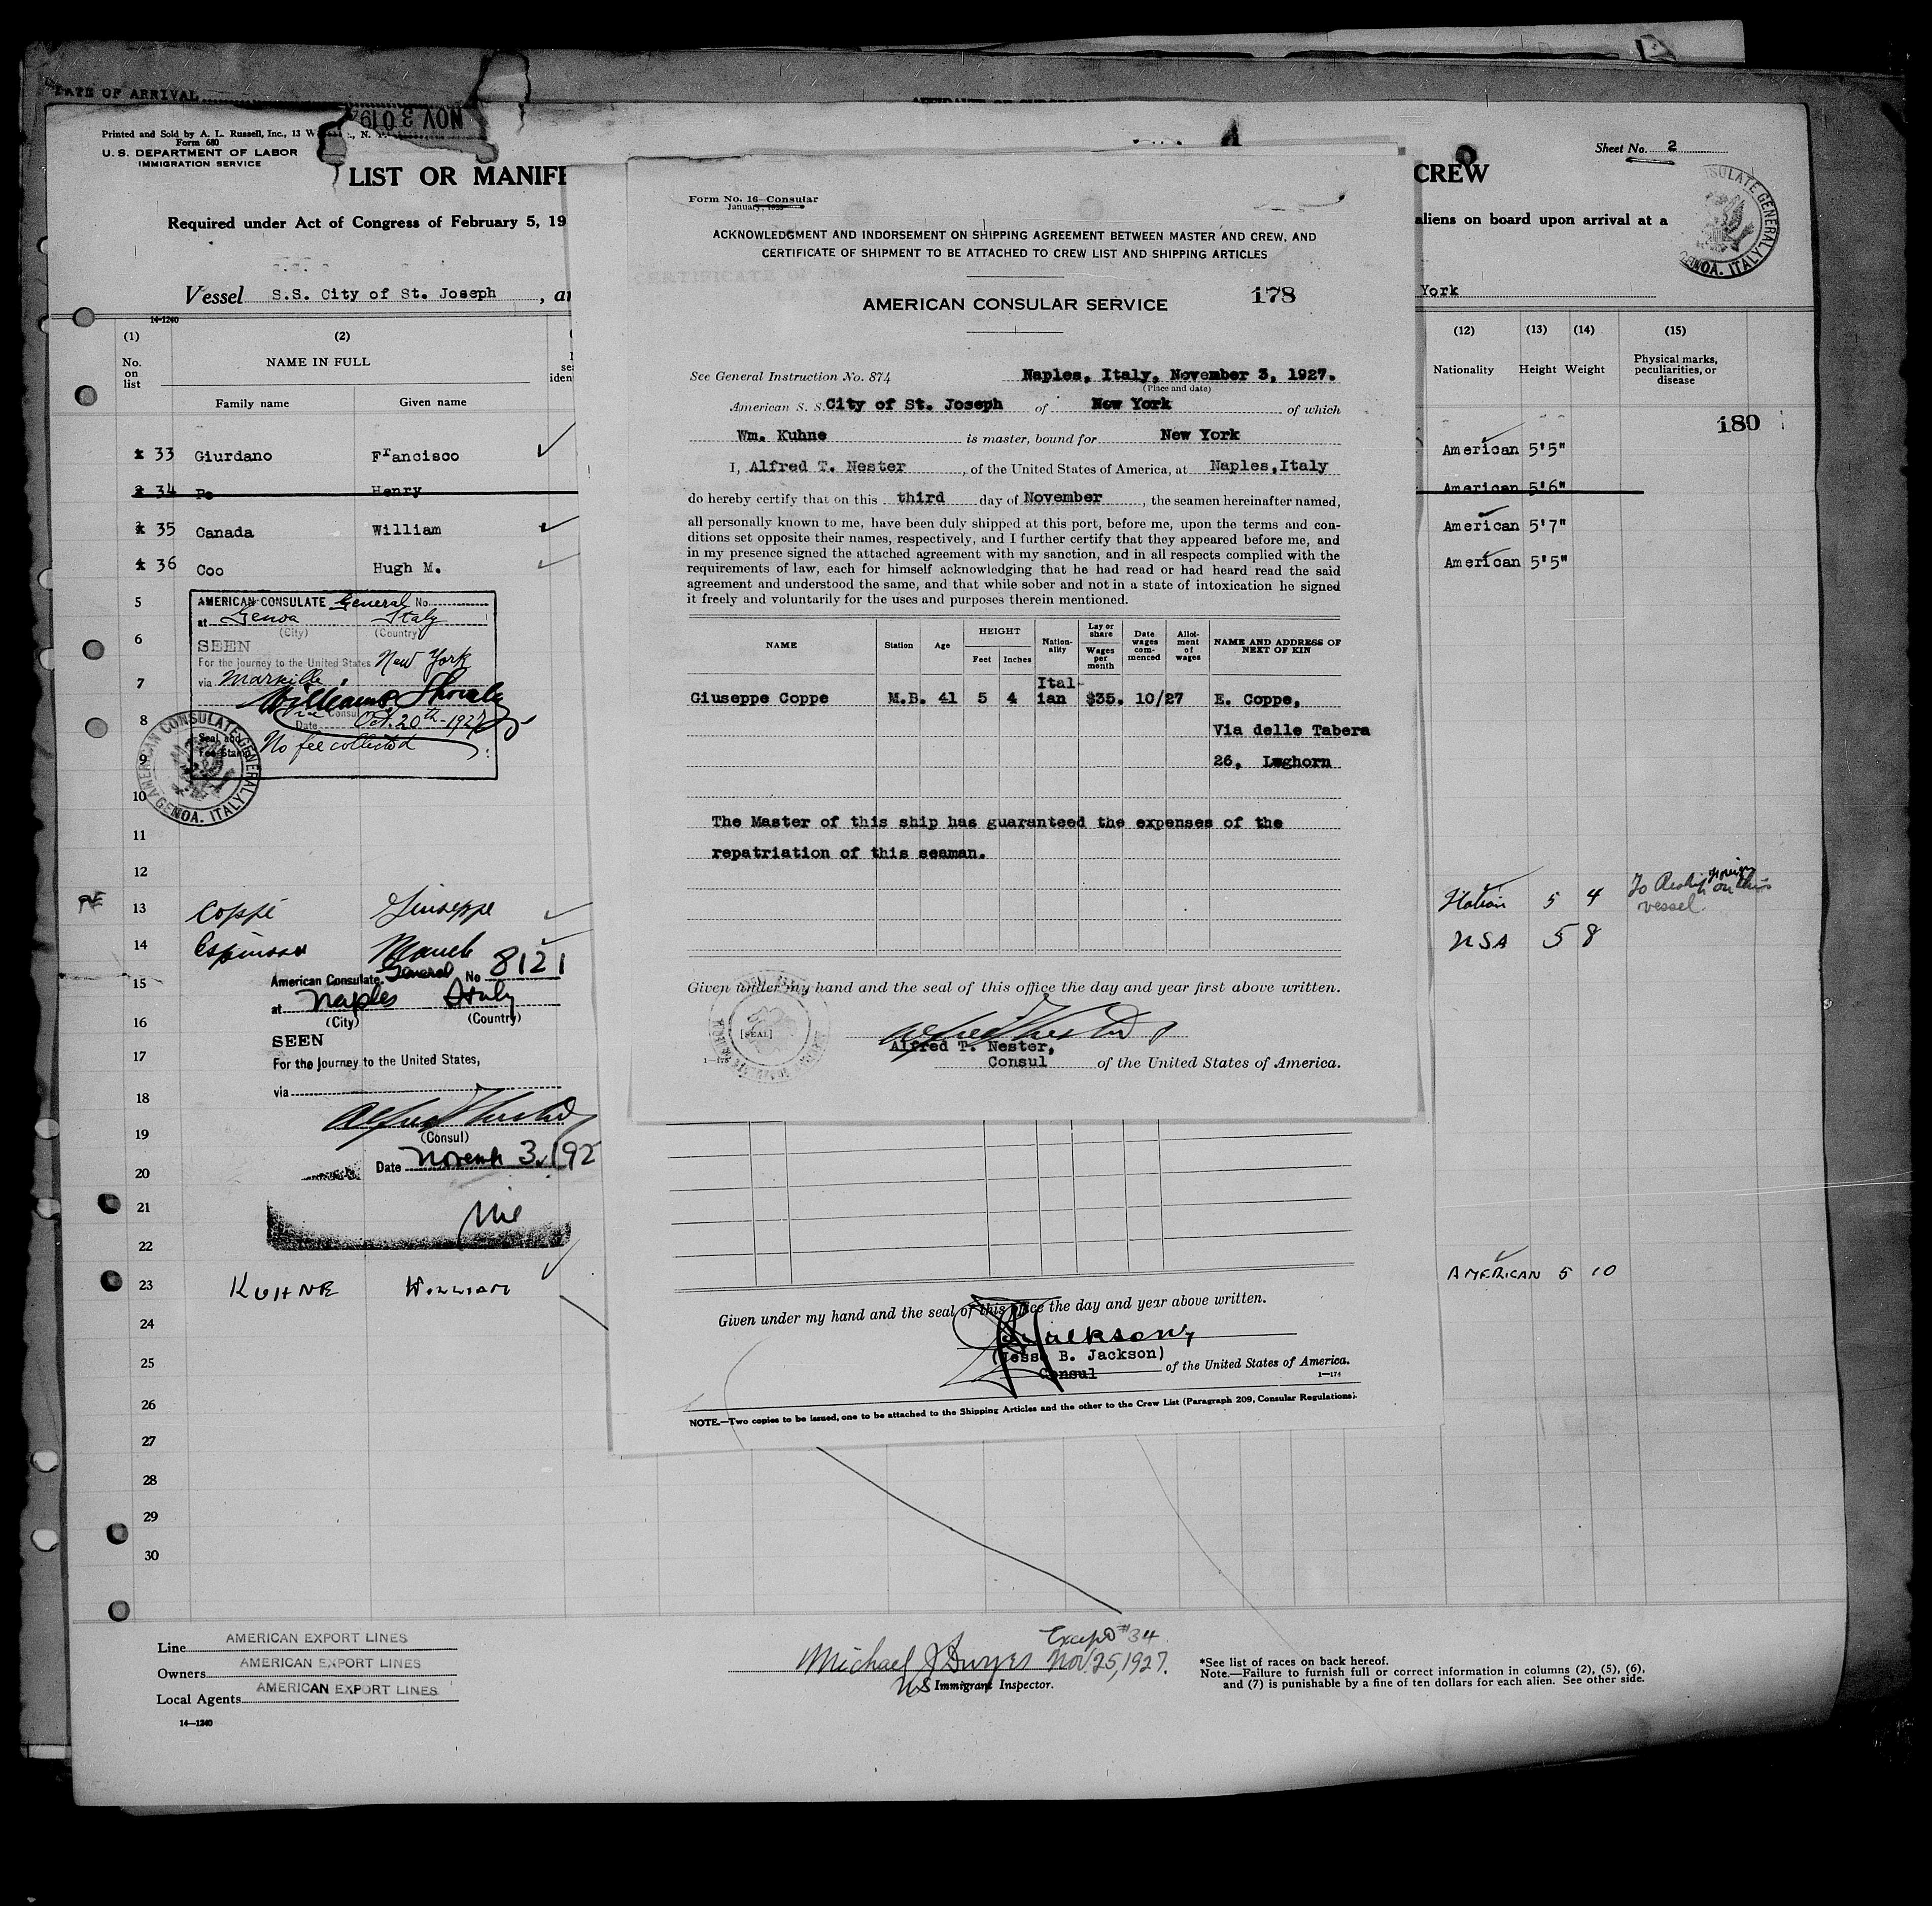 DATE OF ARRIVAL
NOV 30 192
Printed and Sold by A. L. Russell, Inc., 13 W , N. Y.
Form 680
U. S. DEPARTMENT OF LABOR
IMMIGRATION SERVICE
LIST OR MANIFE
CREW
Sheet No. 2
Required under Act of Congress of February 5, 19
aliens on board upon arrival at a
CONSULATE GENERAL GENOA. ITALY
Vessel S.S. City of St. Joseph , a
York
14-1240
(1) (2) (12) (13) (14) (15)
No. on list
NAME IN FULL
Family name Given name
Nationality Height Weight Physical marks, peculiarities, or disease
180
33 Giurdano Francisco American 5'5"
34 Pe Henry American 5'6"
35 Canada William American 5'7"
36 Coo Hugh M. American 5'5"
5
AMERICAN CONSULATE General No.
at Genoa Italy
(City) (Country)
6
SEEN
For the journey to the United States New York
7
via Marseille
8
Vice Consul
Date Oct. 20th-1927
Seal and Fee Stamp No fee collected
9
AMERICAN CONSULATE GENERAL GENOA. ITALY
10
11
12
13 Coppe Giuseppe Italian 5 4 To Reship foreign on this vessel.
14 Espinosa Manuel USA 5 8
15
American Consulate General No 8121
at Naples Italy
16
(City) (Country)
SEEN
17
For the Journey to the United States,
18
via
19
(Consul)
20
Date November 3, 192
21
22
23 KUHNE WILLIAM AMERICAN 5 10
24
25
26
27
28
29
30
Form No. 16—Consular
January, 1923
ACKNOWLEDGMENT AND INDORSEMENT ON SHIPPING AGREEMENT BETWEEN MASTER AND CREW, AND
CERTIFICATE OF SHIPMENT TO BE ATTACHED TO CREW LIST AND SHIPPING ARTICLES
AMERICAN CONSULAR SERVICE 178
See General Instruction No. 874 Naples, Italy, November 3, 1927.
(Place and date)
American S. S. City of St. Joseph of New York of which
Wm. Kuhne is master, bound for New York
I, Alfred T. Nester, of the United States of America, at Naples,Italy
do hereby certify that on this third day of November, the seamen hereinafter named,
all personally known to me, have been duly shipped at this port, before me, upon the terms and con-
ditions set opposite their names, respectively, and I further certify that they appeared before me, and
in my presence signed the attached agreement with my sanction, and in all respects complied with the
requirements of law, each for himself acknowledging that he had read or had heard read the said
agreement and understood the same, and that while sober and not in a state of intoxication he signed
it freely and voluntarily for the uses and purposes therein mentioned.
NAME Station Age HEIGHT Feet Inches Nation-ality Lay or share Wages per month Date wages com-menced Allot-ment of wages NAME AND ADDRESS OF NEXT OF KIN
Giuseppe Coppe M.B. 41 5 4 Ital-ian $35. 10/27 E. Coppe,
Via delle Tabera
26, Leghorn
The Master of this ship has guaranteed the expenses of the
repatriation of this seaman.
Given under my hand and the seal of this office the day and year first above written.
[SEAL]
Alfred T. Nester,
1—175
Consul of the United States of America.
Given under my hand and the seal of this office the day and year above written.
Jackson,
(Jesse B. Jackson)
Consul of the United States of America.
1—174
NOTE.—Two copies to be issued, one to be attached to the Shipping Articles and the other to the Crew List (Paragraph 209, Consular Regulations).
Line AMERICAN EXPORT LINES
Owners AMERICAN EXPORT LINES
Local Agents AMERICAN EXPORT LINES
14—1240
Except #34
Michael J Dwyer Nov. 25, 1927.
US Immigrant Inspector.
*See list of races on back hereof.
Note.—Failure to furnish full or correct information in columns (2), (5), (6),
and (7) is punishable by a fine of ten dollars for each alien. See other side.